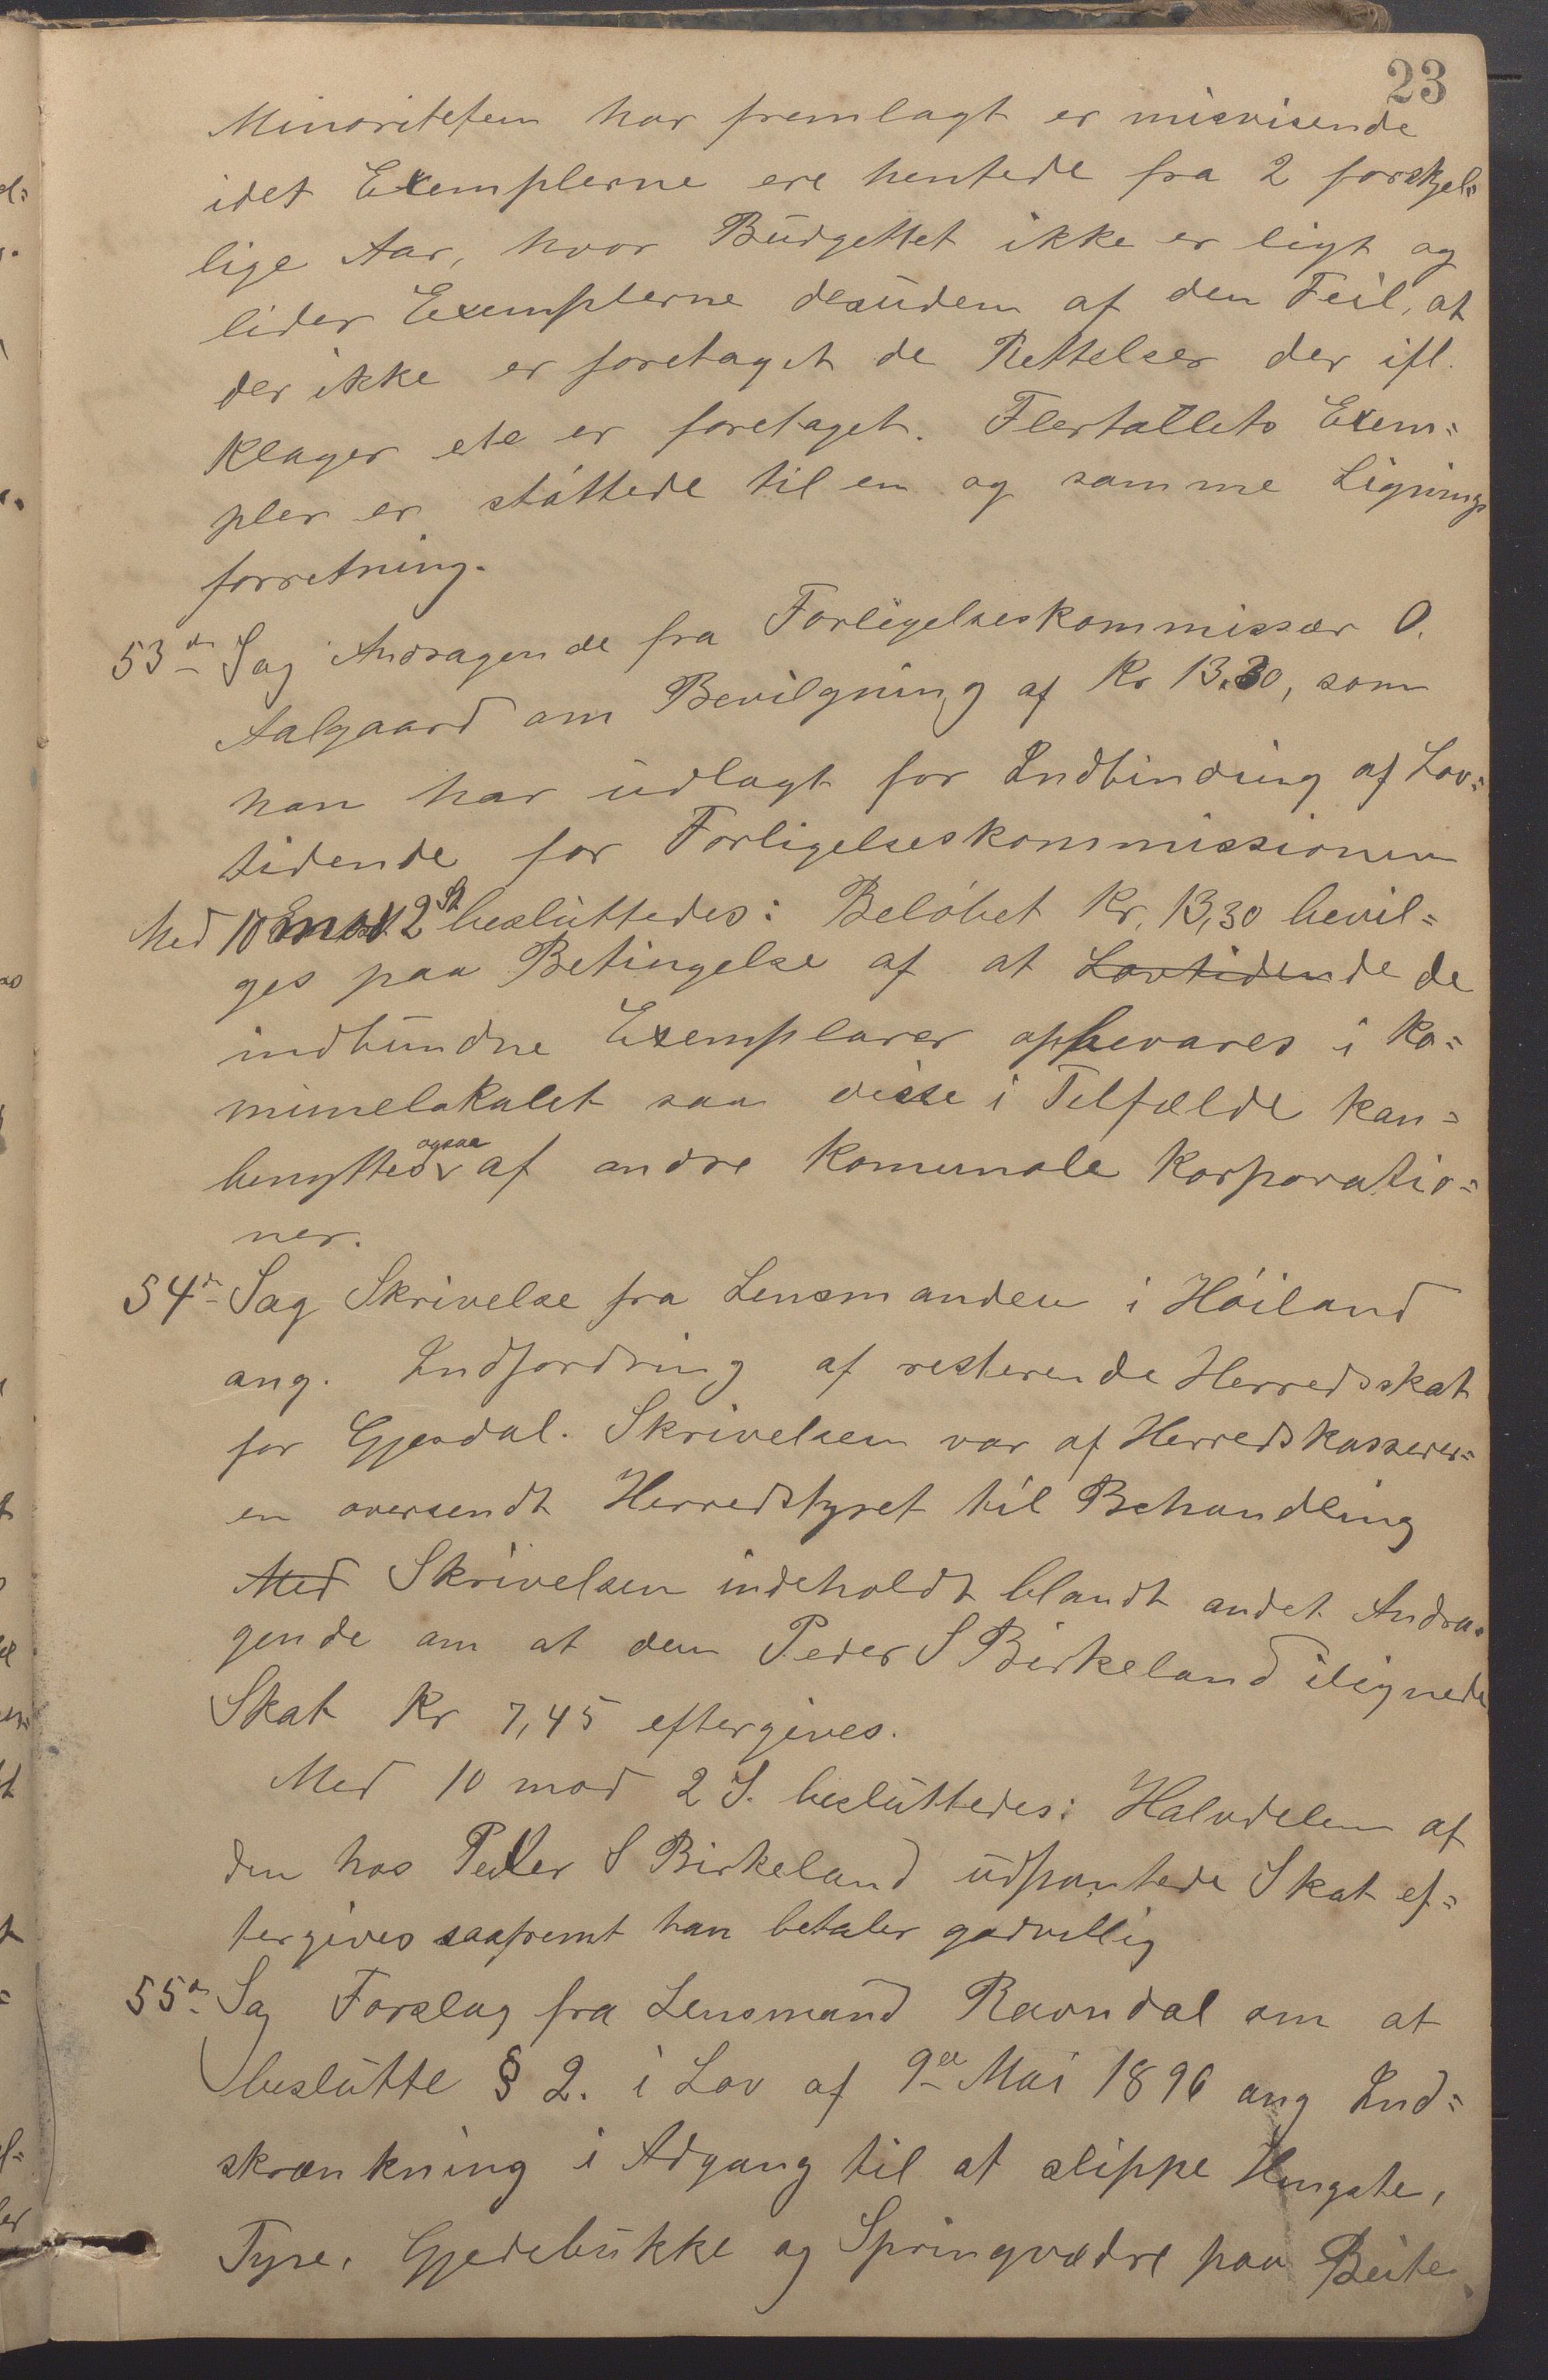 23
Minoriteten har fremlagt er misvisende
idet Exemplerne ere hentede fra 2 forskjel=
lige Aar, hvor Budgettet ikke er ligt og
lider Exemplerne desuden af den Feil, at
der ikke er foretaget de Rettelser der ifl.
Klager ete er foretaget. Flertallets Exem=
pler er støttede til en og samme Lignings
forretning.
53de Sag Andragende fra Forligelseskommissær O.
Aalgaard om Bevilgning af Kr 13.30, som
han har udlagt for Indbinding af Lov=
tidende for Forligelseskommissionen
Med 10 mod 2 St besluttedes: Beløbet Kr. 13,30 bevil=
ges paa Betingelse af at Lovtidende de
indbundne Exemplarer opbevares i Ko=
munelokalet saa disse i Tilfælde kan=
benyttes ogsaa af andre Komunale Korporatio=
ner.
54de Sag Skrivelse fra Lensmanden i Høiland
ang. Indfordring af resterende Herredsskat
for Gjesdal. Skrivelsen var af Herredskasserer=
en oversendt Herredstyret til Behandling
Med Skrivelsen indeholdt blandt andet Andra=
gende om at den Peder S Birkeland ilignede
Skat Kr 7,45 eftergives.
Med 10 mod 2 S. besluttedes: Halvdelen af
den hos Peder S Birkeland udpantede Skat ef=
tergives saafremt han betaler godvillig
55de Sag Forslag fra Lensmand Ravndal om at
beslutte § 2. i Lov af 9de Mai 1896 ang Ind=
skrænkning i Adgang til at slippe Hingste,
Tyre, Gjedebukke og Springvædre paa Beite